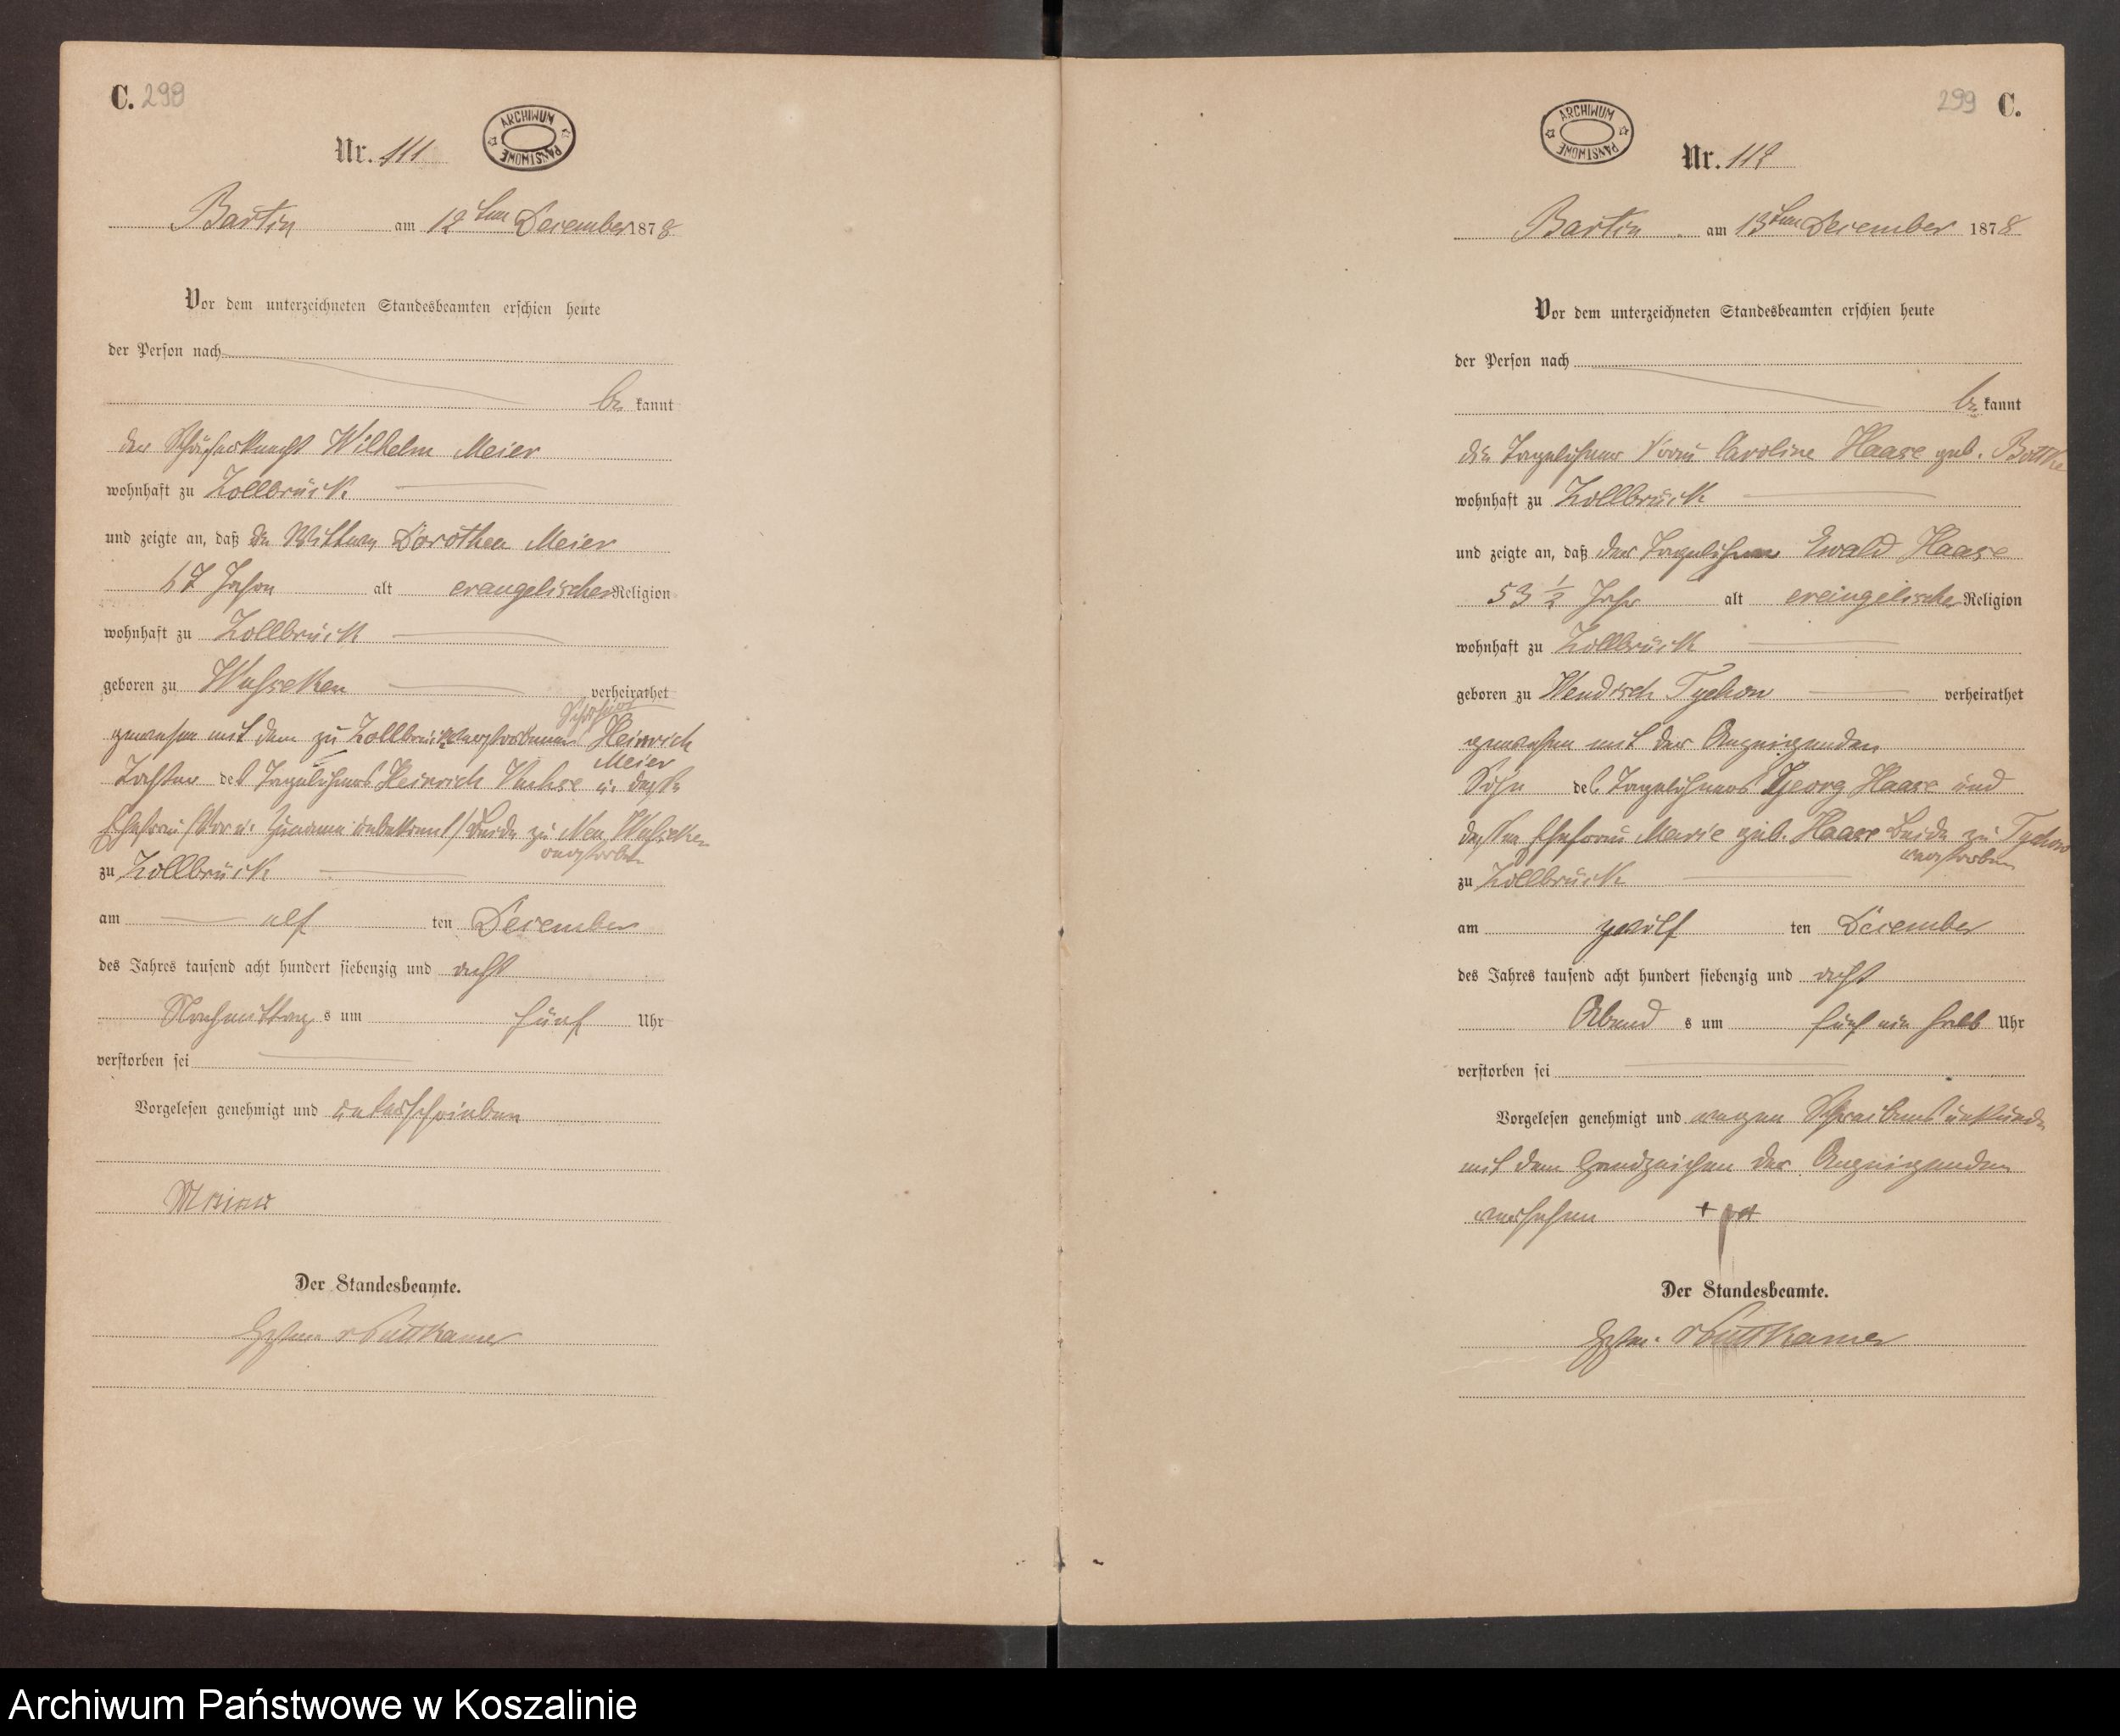 C. 299
ARCHIWUM PAŃSTWOWE
Nr. 111
Bartin am 12ten December 1878
Vor dem unterzeichneten Standesbeamten erschien heute
der Person nach
be kannt
der Schäferknecht Wilhelm Meier
wohnhaft zu Zollbrück
und zeigte an, daß die Wittwe Dorothea Meier
67 Jahre alt evangelischer Religion
wohnhaft zu Zollbrück
geboren zu Wusseken verheirathet
gewesen mit dem zu Zollbrück verstorbenen Schäfer Heinrich
Meier
Tochter des Tagelöhners Heinrich u. dessen
Ehefrau /Vor u. Zuname unbekannt/ Beide zu Neu Wusseken
verstorben
zu Zollbrück
am elf ten December
des Jahres tausend acht hundert siebenzig und acht
Nachmittag s um fünf Uhr
verstorben sei
Vorgelesen genehmigt und unterschrieben
Meier
Der Standesbeamte.
v Puttkamer
299 C.
ARCHIWUM PAŃSTWOWE
Nr. 112
Bartin am 13ten December 1878
Vor dem unterzeichneten Standesbeamten erschien heute
der Person nach
be kannt
die Tagelöhner Frau Caroline Haase geb.
wohnhaft zu Zollbrück
und zeigte an, daß der Tagelöhner Ewald Haase
53 1/2 Jahr alt evangelischer Religion
wohnhaft zu Zollbrück
geboren zu Wendisch Tychow verheirathet
gewesen mit der Anzeigenden
Sohn des Tagelöhners Georg Haase und
dessen Ehefrau Marie geb. Haase Beide zu Tychow
verstorben
zu Zollbrück
am zwölf ten December
des Jahres tausend acht hundert siebenzig und acht
Abend s um fünf ein halb Uhr
verstorben sei
Vorgelesen genehmigt und wegen Schreibensunkunde
mit dem Handzeichen der Anzeigenden
versehen + + +
Der Standesbeamte.
v Puttkamer
Archiwum Państwowe w Koszalinie